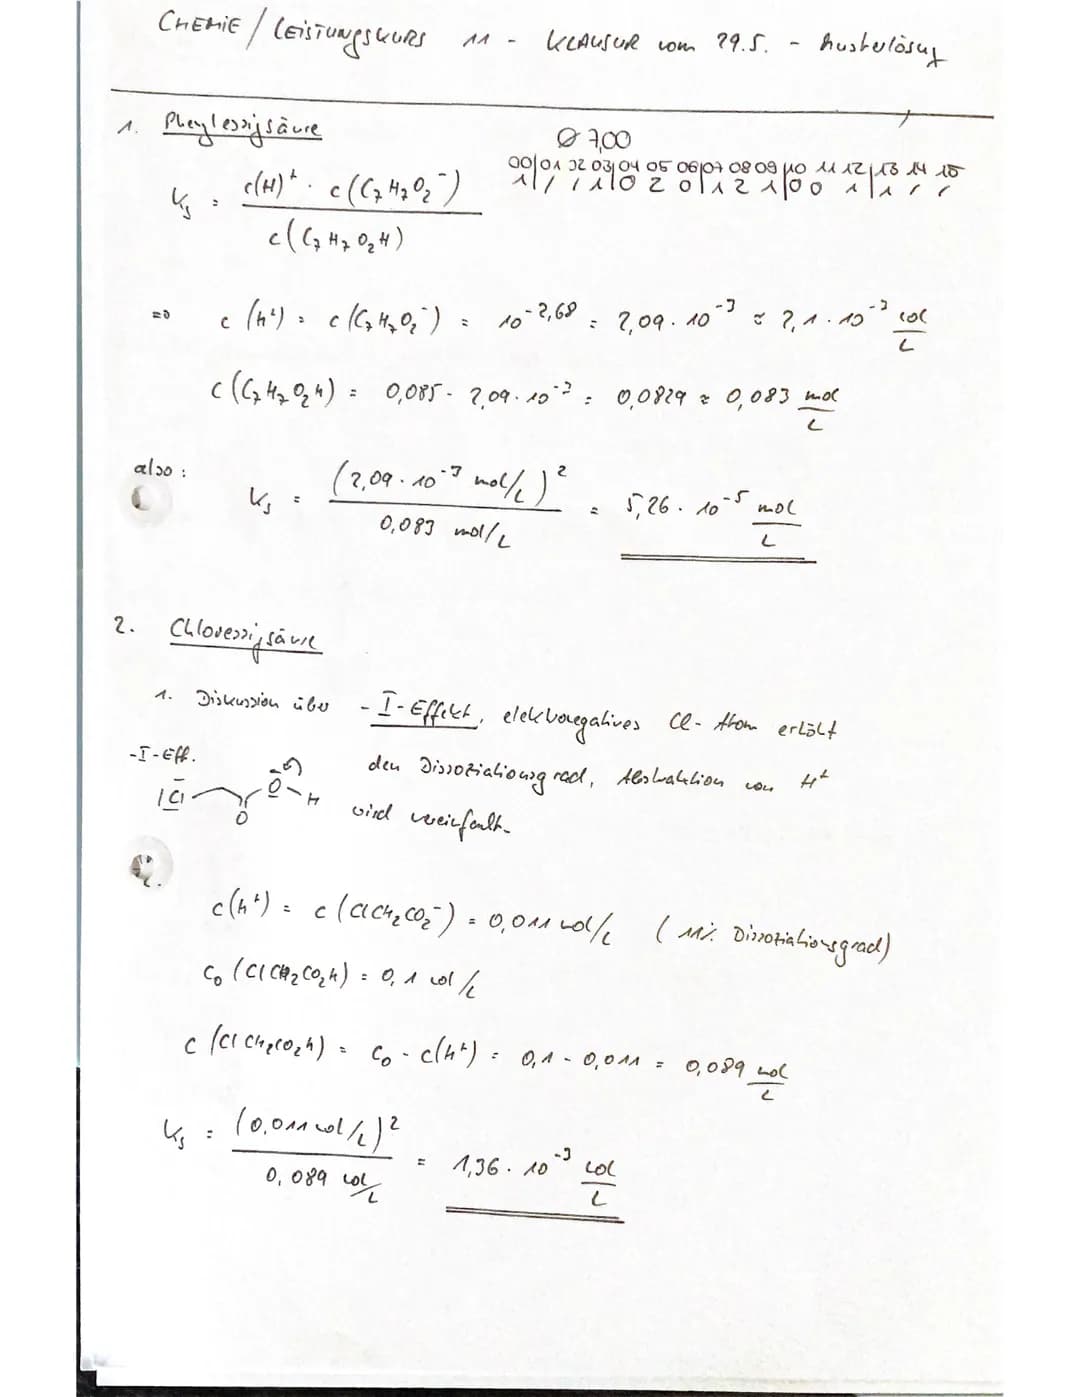 CHEMIE / LEISTUNGSKURS 11 - KLAUSUR vom 29.5. - Musterlösung
1. Phenylessigsäure
Ø 7,00
00|01 02 03|04 05 06|07 08 09|10 11 12|13 14 15
1|/ / 1|0 2 0|1 2 1|0 0 1|1 / /
Ks = c(H)+ · c(C7H7O2-) / c(C7H7O2H)
=> c(H+) = c(C7H7O2-) = 10-2,68 = 2,09 · 10-3 ≈ 2,1 · 10-3 mol/L
c(C7H7O2H) = 0,085 - 2,09 · 10-3 = 0,0829 ≈ 0,083 mol/L
also:
Ks = (2,09 · 10-3 mol/L)2 / 0,083 mol/L = 5,26 · 10-5 mol/L
2. Chloressigsäure
1. Diskussion über -I-Effekt, elektronegatives Cl-Atom erhöht
-I-Eff.
den Dissoziationsgrad, Abstraktion von H+
|Cl O O-H
wird vereinfacht.
2.
c(H+) = c(ClCH2CO2-) = 0,011 mol/L (11% Dissoziationsgrad)
C0(ClCH2CO2H) = 0,1 mol/L
c(ClCH2CO2H) = C0 - c(H+) = 0,1 - 0,011 = 0,089 mol/L
Ks = (0,011 mol/L)2 / 0,089 mol/L = 1,36 · 10-3 mol/L